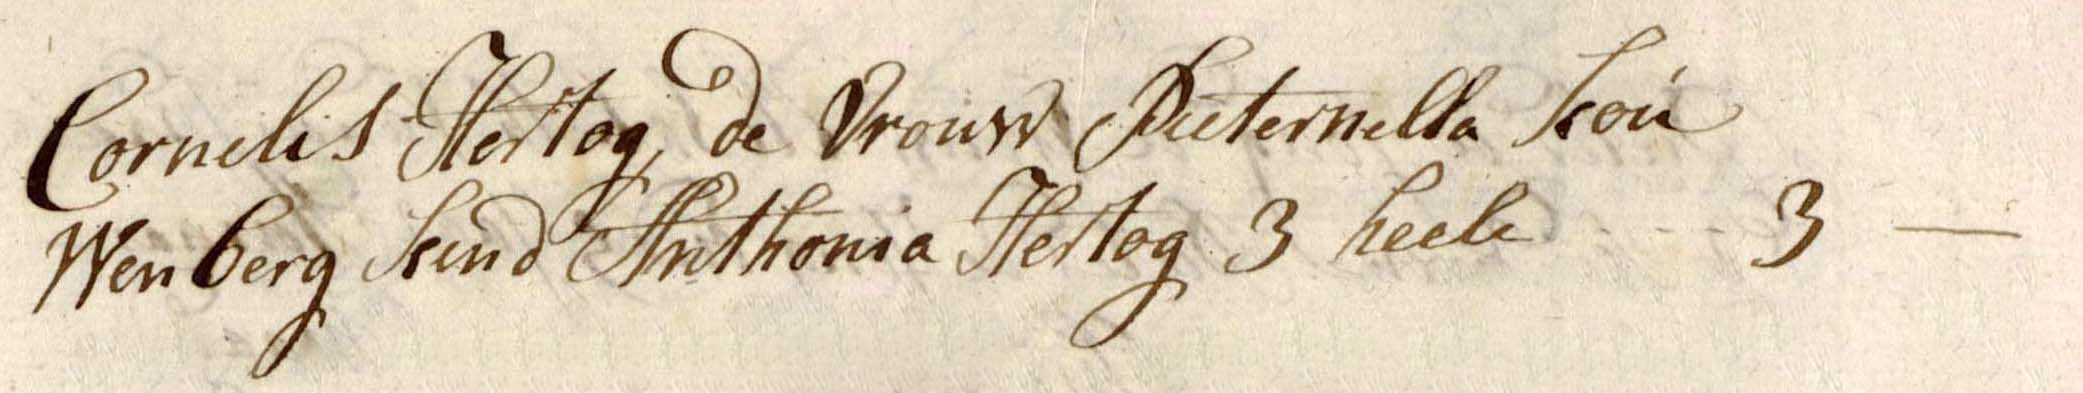 Cornelis Hertog, de Vrouw Pieternella Kou
Wenberg kind Anthonia Hertog 3 heele - - - - 3 —